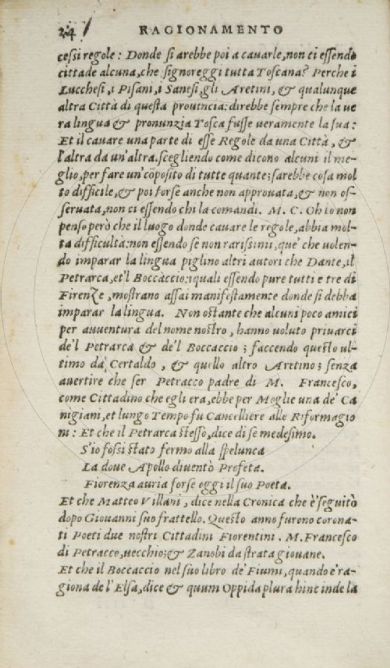 24 RAGIONAMENTO
cessi regole: Donde si arebbe poi a cauarle, non ci essendo
cittade alcuna, che signoreggi tutta Toscana? Perche i
Lucchesi, i Pisani, i Sanesi, gli Aretini, & qualunque
altra Città di questa prouincia: direbbe sempre che la ue
ra lingua & pronunzia Tosca fusse ueramente la sua:
Et il cauare una parte di esse Regole da una Città, &
l'altra da un'altra, scegliendo come dicono alcuni il me-
glio, per fare un cōposito di tutte quante; sarebbe cosa mol
to difficile, & poi forse anche non approuata, & non os-
seruata, non ci essendo chi la comandi. M. C. Oh io non
penso però che il luogo donde cauare le regole, abbia mol-
ta difficultà: non essendo se non rarissimi, que' che uolen-
do imparar la lingua piglino altri autori che Dante, il
Petrarca, et'l Boccaccio: i quali essendo pure tutti e tre di
Firenze, mostrano assai manifestamente donde si debba
imparar la lingua. Non ostante che alcuni poco amici
per auuentura del nome nostro, hanno uoluto priuarci
de'l Petrarca & de'l Boccaccio; faccendo questo ul-
timo da Certaldo, & quello altro Aretino; senza
auertire che ser Petracco padre di M. Francesco,
come Cittadino che egli era, ebbe per Moglie una de' Ca
nigiani, et lungo Tempo fu Cancelliere alle Riformagio
ni: Et che il Petrarca stesso, dice di se medesimo.
S'io fossi stato fermo alla spelunca
La doue Apollo diuentò Profeta.
Fiorenza auria forse oggi il suo Poeta.
Et che Matteo Villani, dice nella Cronica che è seguitò
dopo Giouanni suo frattello. Questo anno furono corona-
ti Poeti due nostri Cittadini Fiorentini. M. Francesco
di Petracco, uecchio; & Zanobi da strata giouane.
Et che il Boccaccio nel suo libro de' Fiumi, quando e' ra-
giona de l'Elsa, dice & quum Oppida plura hinc inde la